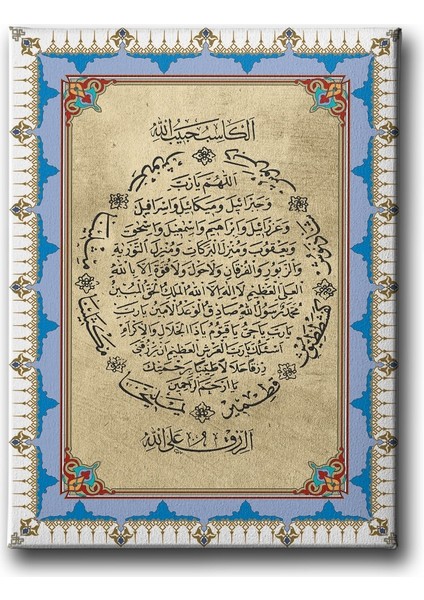 الكاسب حبيب الله
اللهم يارب
وجبرائيل وميكائيل واسرافيل
وعزرائيل وابراهيم واسمعيل واسحق
ويعقوب ومنزل البركات ومنزل التورية
والزبور والفرقان ولاحول ولاقوة الا بالله
العلى العظيم لااله الا الله الملك الحق المبين
محمد رسول الله صادق الوعد الامين يارب
يارب ياحى ياقيوم ياذا الجلال والاكرام
اسئلك يارب العرش العظيم ان ترزقنى
رزقا حلالا طيبا برحمتك
يا ارحم الراحمين
يمليخا
مكسلينا
قطمير
الرزق على الله